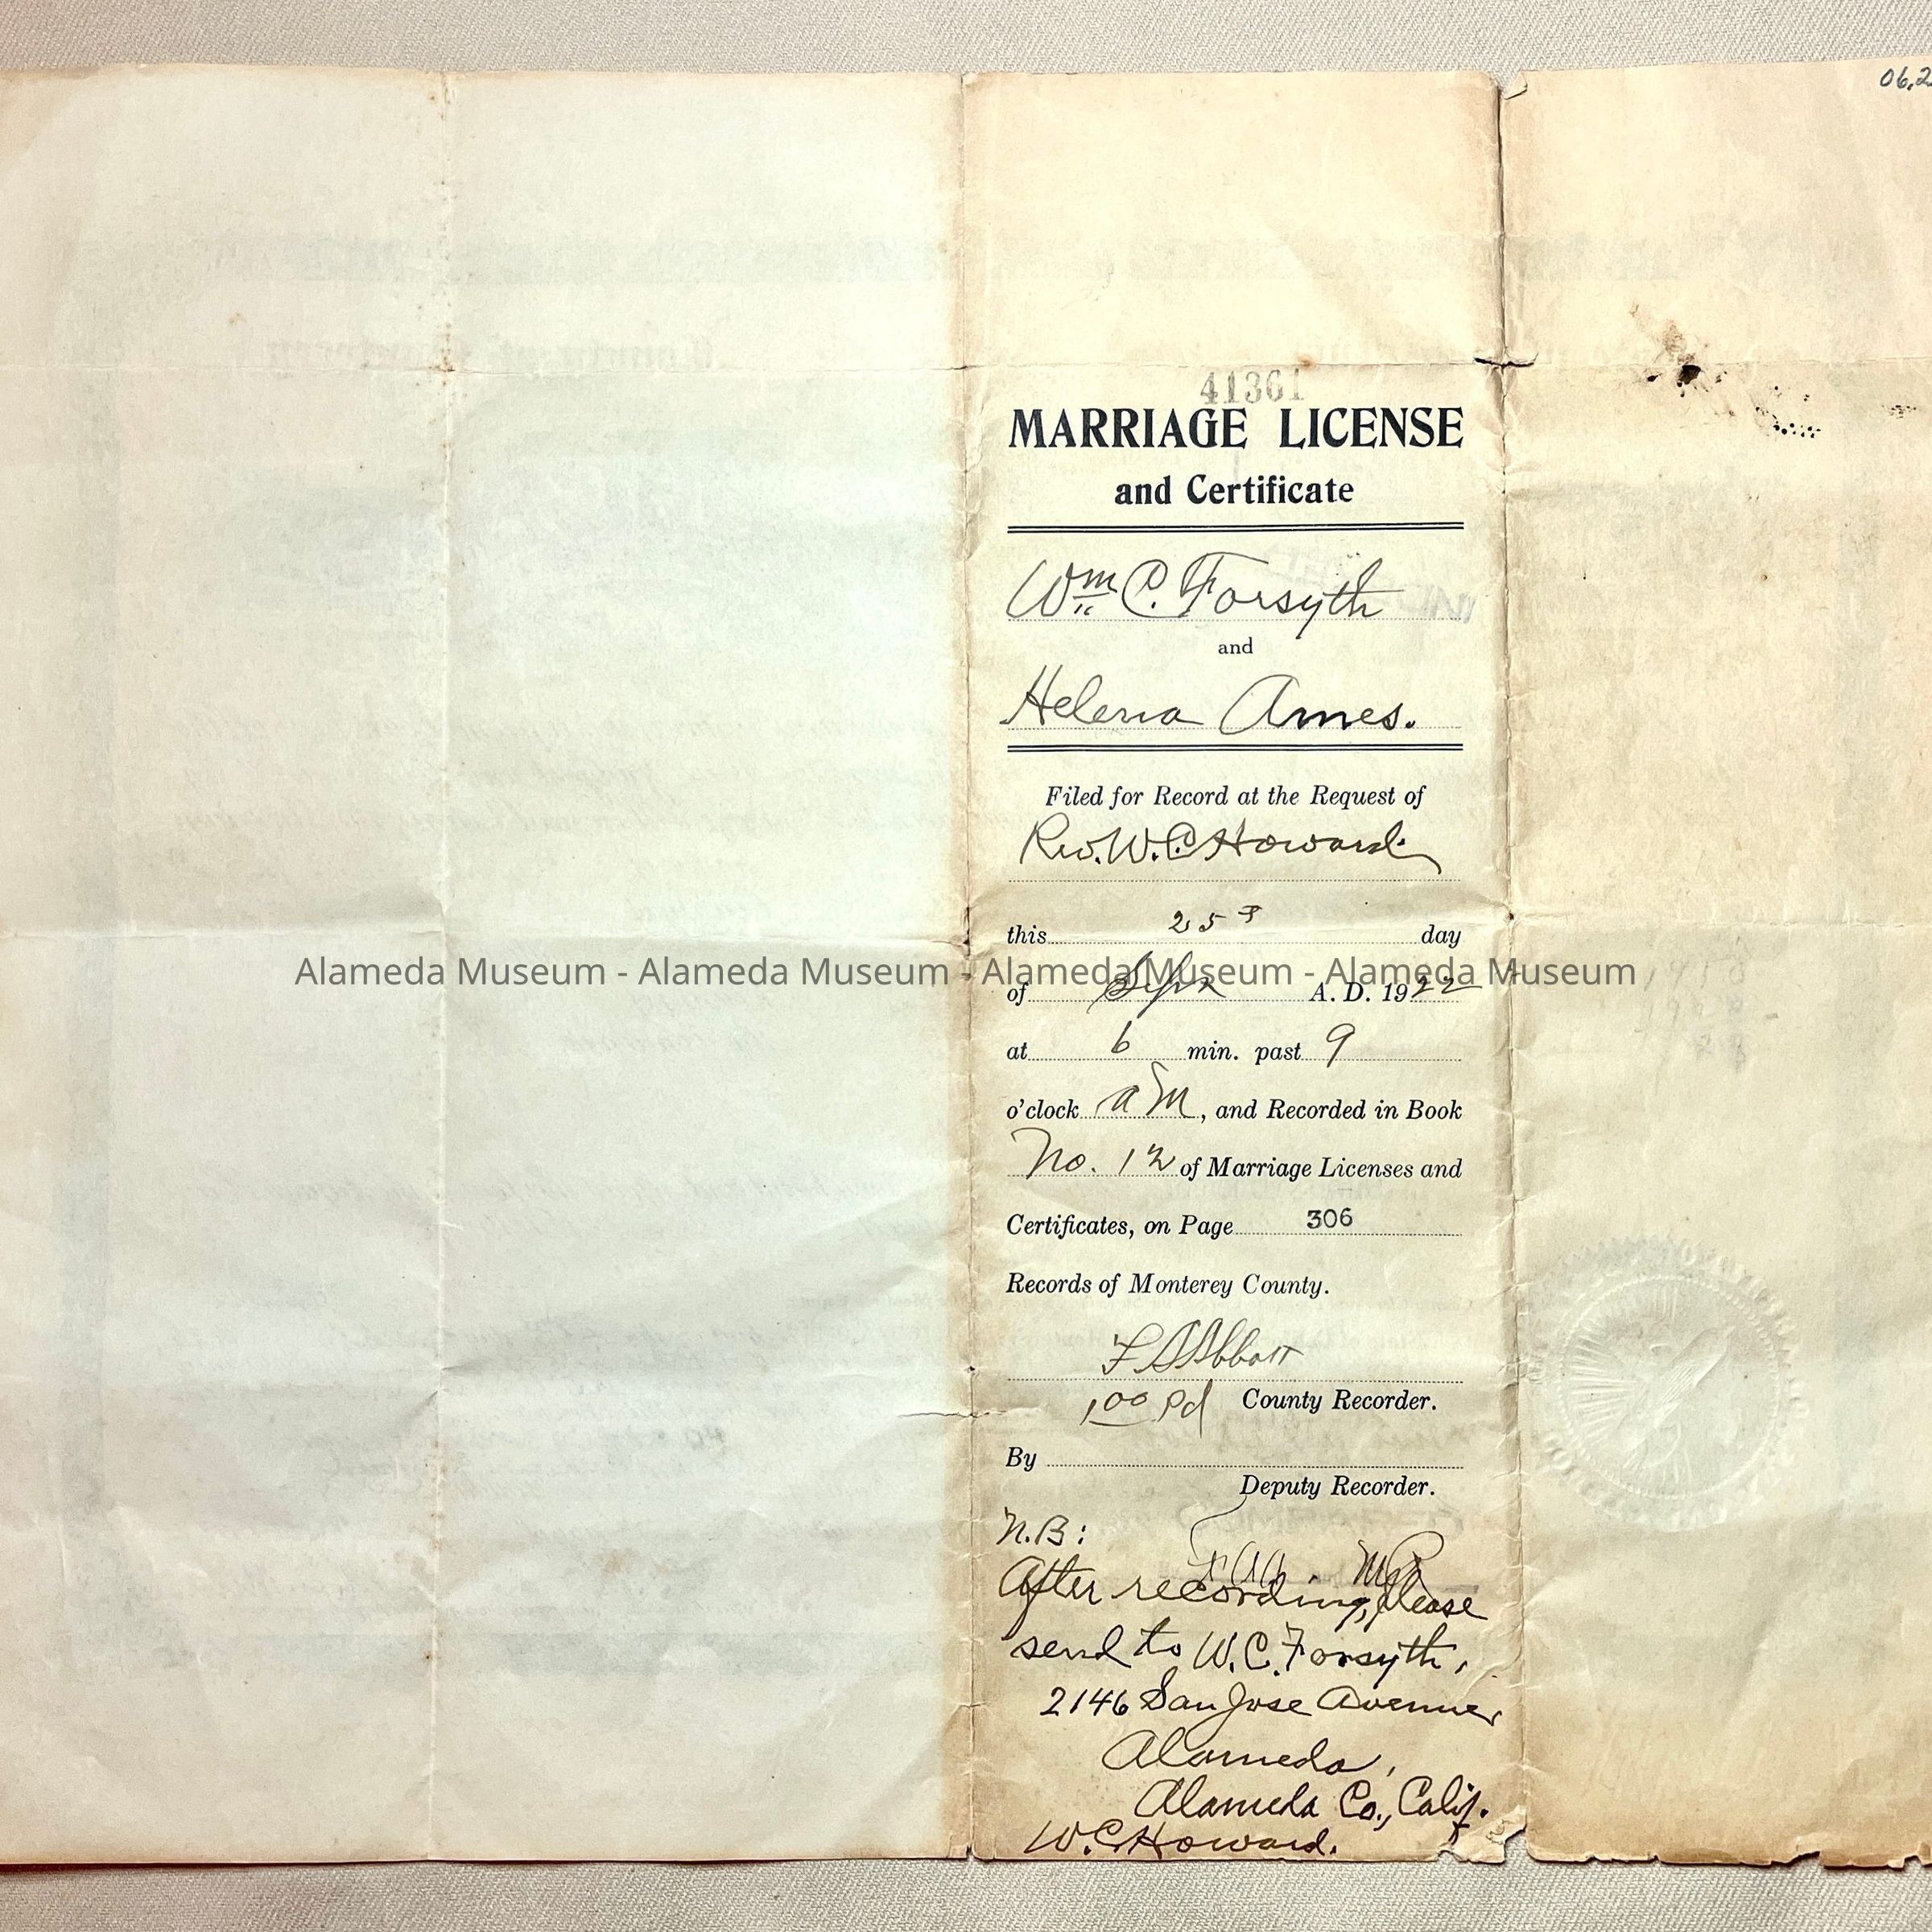 06.2
41361
MARRIAGE LICENSE
and Certificate
Wm C. Forsyth
and
Helena Ames.
Filed for Record at the Request of
Rev. W. C. Howard
this 25 day
Alameda Museum - Alameda Museum - Alameda Museum - Alameda Museum
of Sept A. D. 1922
at 6 min. past 9
o'clock a M, and Recorded in Book
No. 12 of Marriage Licenses and
Certificates, on Page 306
Records of Monterey County.
F A Abbott
1.00 Pd County Recorder.
By
Deputy Recorder.
N.B:
After recording, please
send to W. C. Forsyth,
2146 San Jose Avenue,
Alameda,
Alameda Co., Calif.
W. C. Howard.